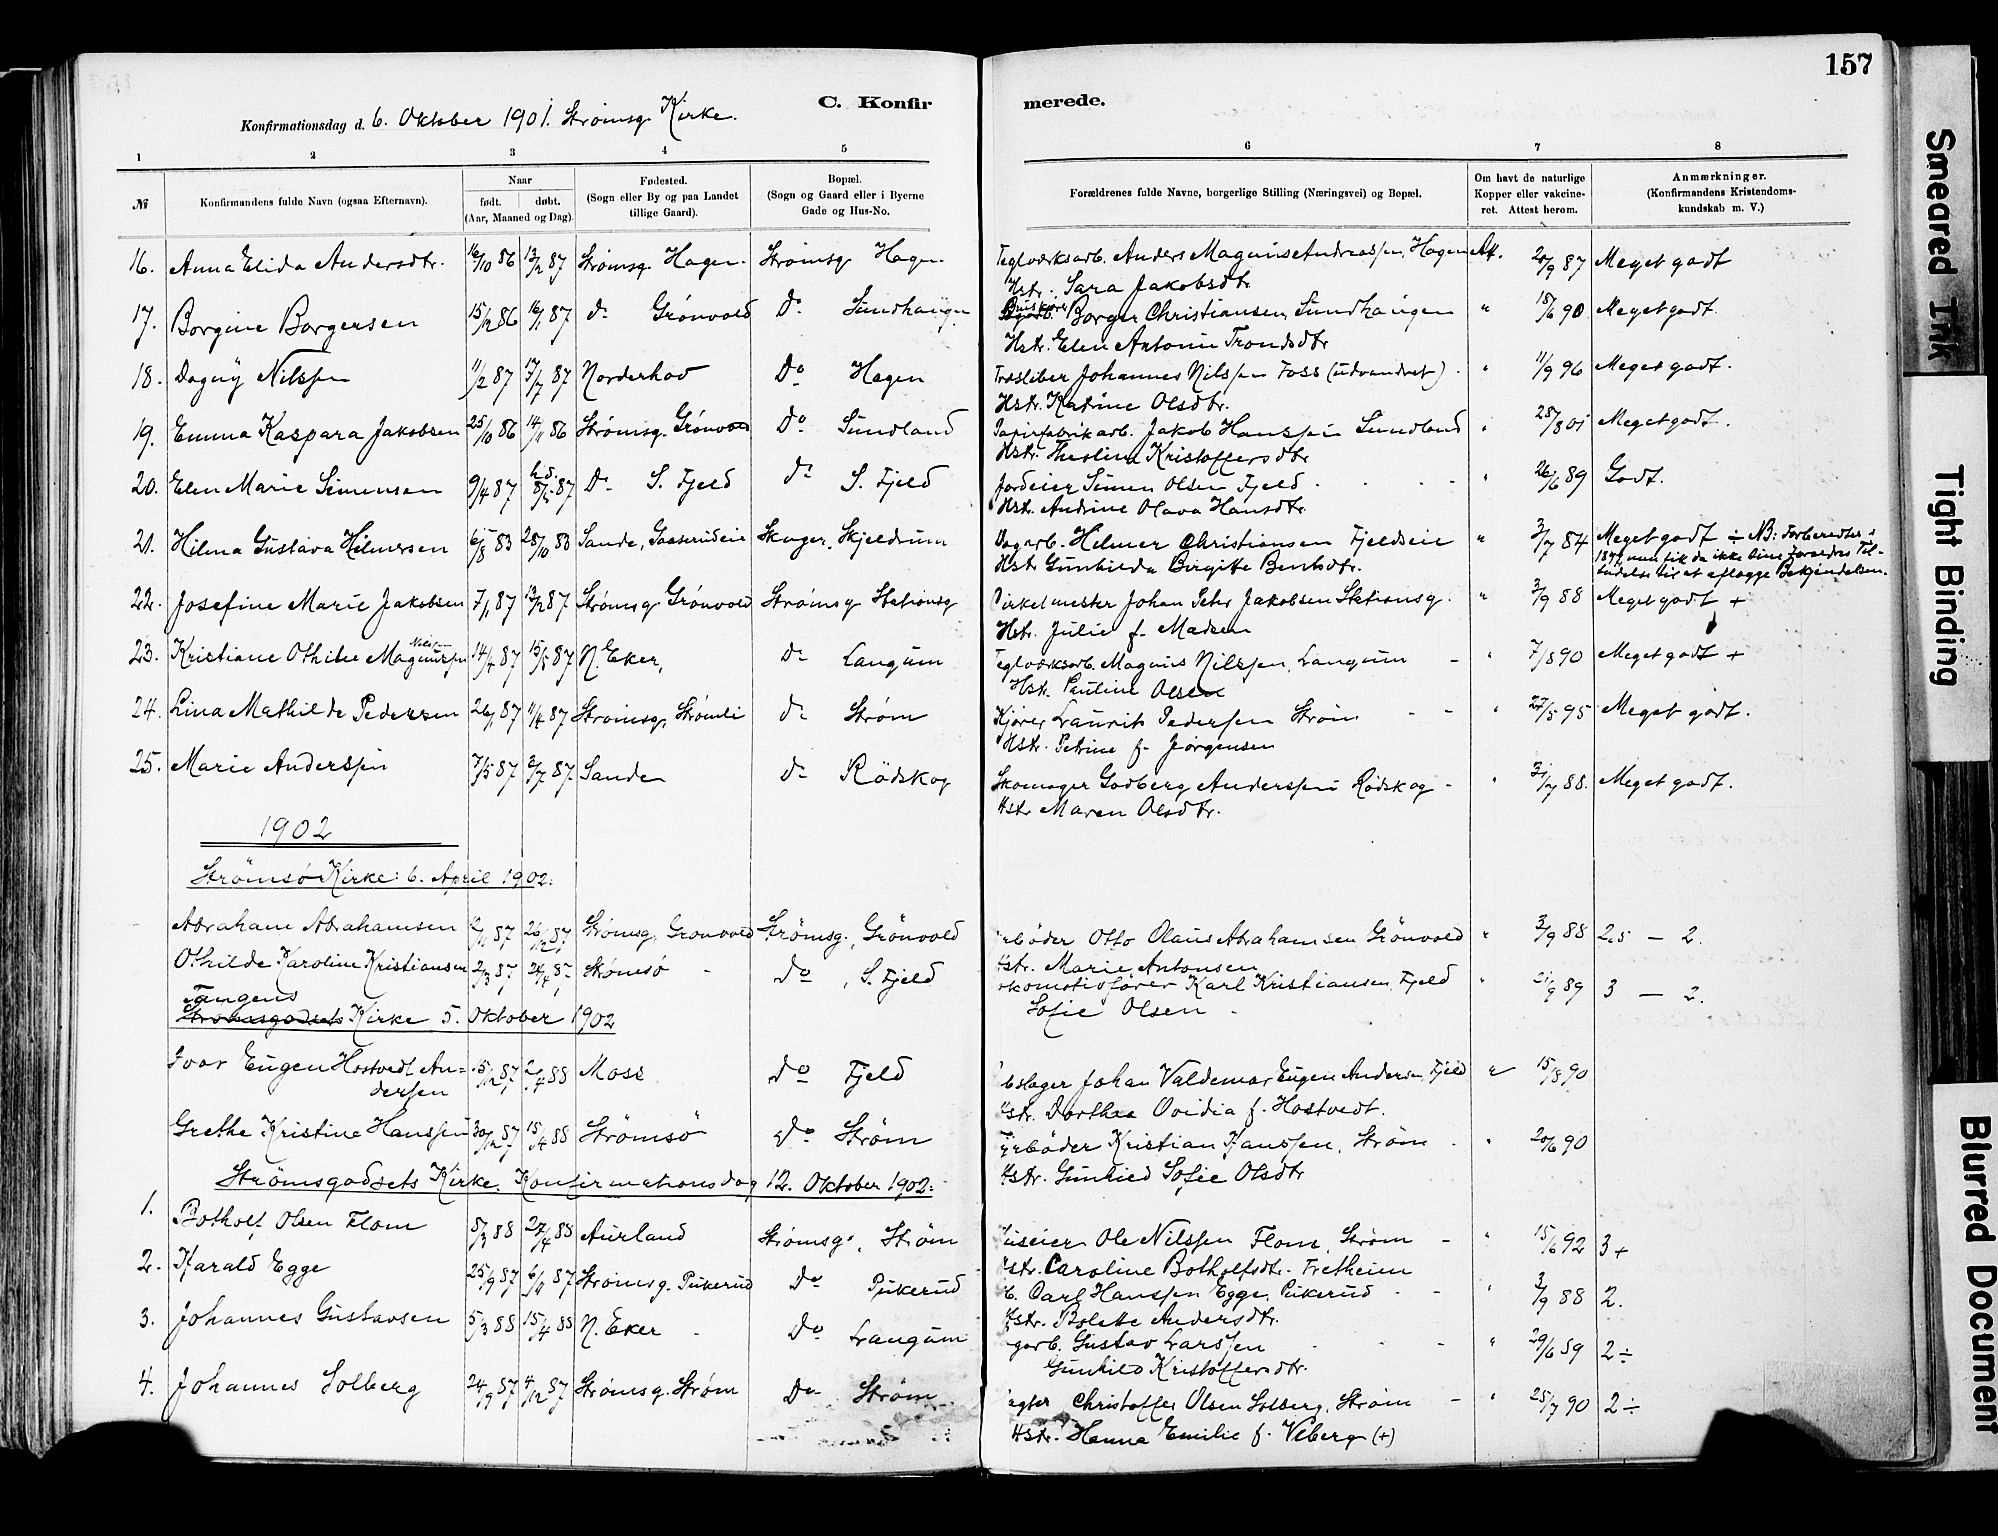 157
C. Konfir merede.
Konfirmationsdag d. 6. Oktober 1901. Strømsg. Kirke.
1 2 3 4 5 6 7 8
№ Konfirmandens fulde Navn (ogsaa Efternavn). Naar født. døbt. (Aar, Maaned og Dag). Fødested. (Sogn eller By og paa Landet tillige Gaard). Bopæl. (Sogn og Gaard eller i Byerne Gade og Hus-No. Forældrenes fulde Navne, borgerlige Stilling (Næringsvei) og Bopæl. Om havt de naturlige Kopper eller vakcineret. Attest herom. Anmærkninger. (Konfirmandens Kristendomskundskab m. V.)
16. Anna Elida Andersdtr. 16/10 86 13/2 87 Strømsg. Hagen. Strømsg. Hagen. Teglværksarb. Anders Magnus Andreassen, Hagen Att. 20/9 87 Meget godt
Hstr. Sara Jakobsdtr
17. Borgine Borgersen 15/12 86 16/1 87 do Grönvold Do Sundhaugen Borger Christiansen, Sundhaugen " 18/6 90 Meget godt.
Hstr. Elen Antonie Trondsdtr
18. Dagny Nilssen 11/2 87 17/7 87 Norderhov Do Hagen Træsliber Johannes Nilssen Foss (udvandret). " 11/9 96 Meget godt.
Hstr. Katrine Olsdtr.
19. Emma Kaspara Jakobsen 25/10 86 14/11 86 Strømsg. Grönvold Do Sundland Papirfabrikarb. Jakob Hanssen Sundland " 28/8 01 Meget godt.
Hstr. Theoline Kristoffersdtr
20. Elen Marie Simensen 9/4 87 hd. 8/5 87 Do S. Fjeld do S. Fjeld Jordeier Simen Olsen Fjeld " 26/6 89 Godt.
Hstr. Andrine Olava Hansdtr.
21. Hilma Gustava Hilmersen 6/8 83 28/10 83 Sande, Gaaserudeie Skoger, Skjeldrum Dagarb. Helmer Christiansen Fjeldseie " 3/7 84 Meget godt ÷ NB: Forberedtes i
Hstr. Gunhilda Birgitte Bentsdtr. men fik da ikke sine Forældres Til-
ladelse til at aflægge Bekjendelsen.
22. Josefine Marie Jakobsen 7/1 87 13/2 87 Strømsg. Grönvold Strømsg. Stationsg. Cirkelmester Johan Petr Jakobsen Stationsg. " 3/9 88 Meget godt +
Hstr. Julie f. Madsen
23. Kristiane Othilie Magnussen 14/4 87 15/5 87 N. Eker, do Langum Teglværksarb. Magnus Nilssen, Langum " 7/8 90 Meget godt +
Hstr. Pauline Olsen
24. Lina Mathilde Pedersen 26/1 87 11/4 87 Strømsg. Strømli do Strøm Kjører Laurits Pedersen Strøm " 22/5 95 Meget godt.
Hstr. Petrine f. Jørgensen
25. Marie Anderssen 7/5 87 3/7 87 Sande do Rödskog Skomager Godberg Anderssen Rödskog " 31/7 88. Meget godt.
Hstr Maren Olsdtr.
1902
Strömsö Kirke: 6. April 1902:
Abraham Abrahamsen 2/11 87 26/12 87 Strømsg. Grønvold Strömsg., Grönvold Otto Olaus Abrahamsen Grönvold " 3/9 88 2,5 — 2.
Hstr. Marie Antonsen
Othilde Karoline Kristiansen 2/3 87 24/4 87 Strømsö do, S. Fjeld Karl Kristiansen, Fjeld " 21/9 89 3 — 2.
Sofie Olsen
Tangens
Strømsgodsets Kirke 5. Oktober 1902
Ivar Eugen Hostvedt An= 15/12 87 2/4 88 Moss Do Fjeld Johan Valdemar Eugen Andersen, Fjeld " 15/8 90
dersen Hstr. Dorthea Ovidia f. Hostvedt.
Grethe Kristine Hanssen 30/12 87 15/4 88 Strömsö Do Strøm Fyrbøder Kristian Hanssen, Strøm " 20/6 90
Hstr. Gunhild Sofie Olsdtr
Strømsgodsets Kirke. Konfirmationsdag 12. Oktober 1902:
1. Botholf Olsen Flom 8/3 88 27/4 88 Aurland Strømsg., Strøm Ole Nilssen Flom, Strøm " 15/6 92 3+
Hstr. Caroline Botholfsdtr. Fretheim
2. Harald Egge 25/9 87 6/11 87 Strømsg. Pukerud Do Pukerud Carl Hanssen Egge, Pukerud " 3/9 88 2.
Hstr. Bolette Andersdtr.
3. Johannes Gustavsen 5/3 88 15/4 88 N. Eker Do Langum Gustav Larssen " 29/6 89 2÷
Gunhild Kristoffersdtr.
4. Johannes Solberg 24/9 87 4/12 87 Strømsg. Strøm Do Strøm Christoffer Olsen Solberg, Strøm " 25/7 90 2÷
Hstr. Hanna Emilie f. Viberg (+)
Smeared Ink
Tight Binding
Blurred Document